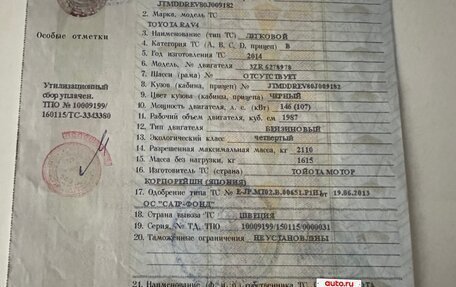 JTMDDREV80J009182
2. Марка, модель ТС
TOYOTA RAV4
Особые отметки
3. Наименование (тип ТС) ЛЕГКОВОЙ
4. Категория ТС (А, В, С, D, прицеп) B
5. Год изготовления ТС 2014
6. Модель, № двигателя 3ZR 6278978
7. Шасси (рама) № ОТСУТСТВУЕТ
Утилизационный
сбор уплачен.
ТПО № 10009199/
160115/ТС-3343380
8. Кузов (кабина, прицеп) № JTMDDREV80J009182
9. Цвет кузова (кабины, прицепа) ЧЕРНЫЙ
10. Мощность двигателя, л. с. (кВт) 146 (107)
11. Рабочий объем двигателя, куб. см 1987
12. Тип двигателя БЕНЗИНОВЫЙ
13. Экологический класс четвертый
14. Разрешенная максимальная масса, кг 2110
15. Масса без нагрузки, кг 1615
16. Изготовитель ТС (страна) ТОЙОТА МОТОР
КОРПОРЕЙШН (ЯПОНИЯ)
17. Одобрение типа ТС № E-JP.МТ02.B.00651.P1И1 от 19.06.2013
ОС "САТР-ФОНД"
18. Страна вывоза ТС ШВЕЦИЯ
19. Серия, № ТД, ТПО 10009199/150115/0000031
20. Таможенные ограничения НЕ УСТАНОВЛЕНЫ
21. Наименование (ф. и. о.) собственника ТС
auto.ru